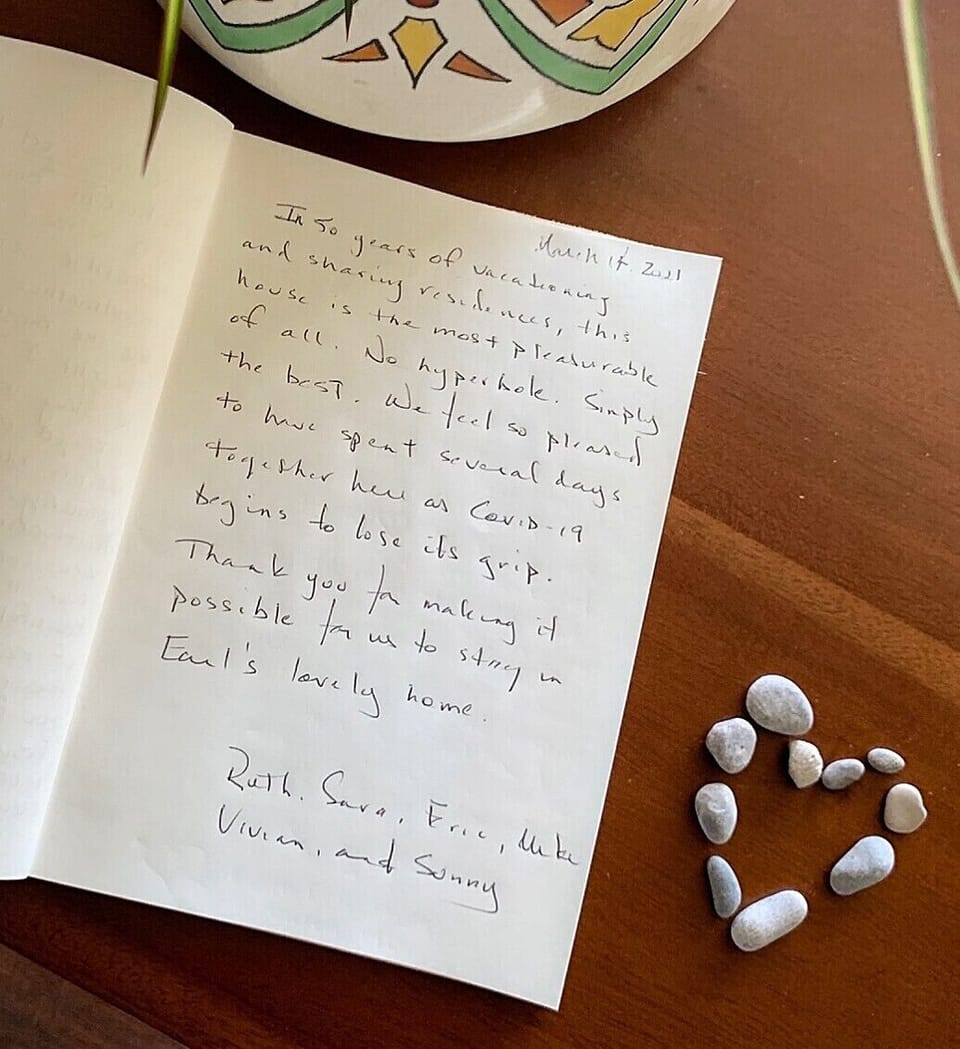 March 17. 2021
In 50 years of vacationing
and sharing residences, this
house is the most pleasurable
of all. No hyperbole. Simply
the best. We feel so pleased
to have spent several days
together here as Covid-19
begins to lose its grip.
Thank you for making it
possible for us to stay in
Earl's lovely home.
Ruth, Sara, Eric, Mike
Vivian, and Sonny